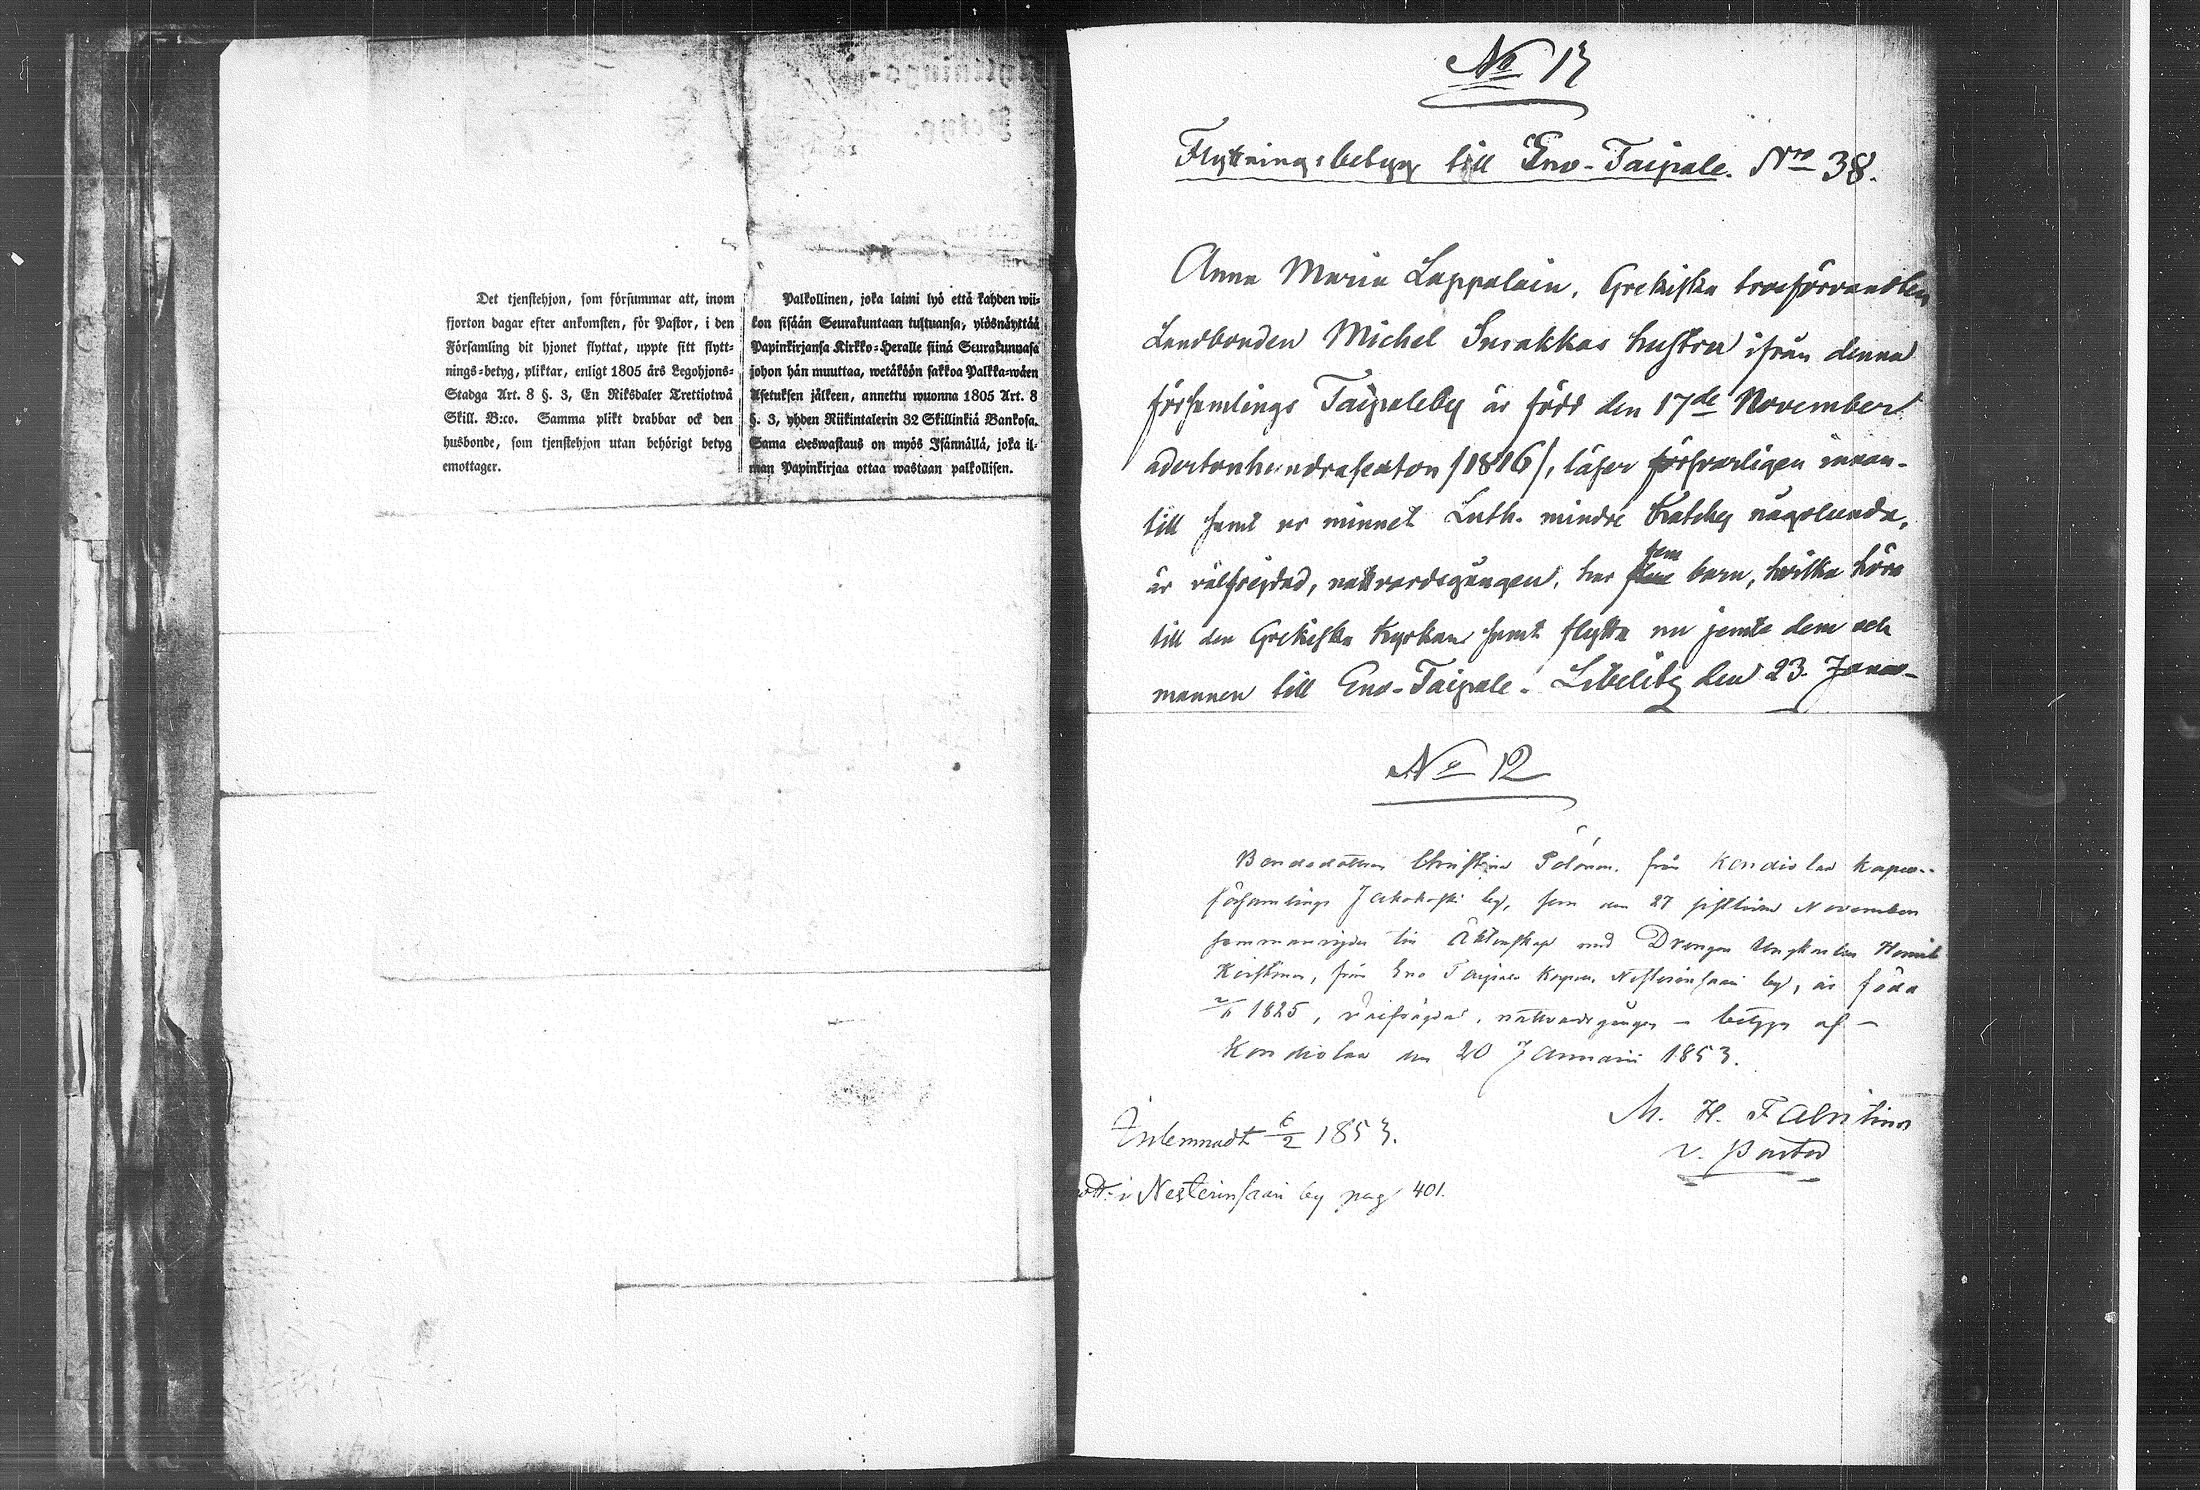 Det tjenstehjon, som försummar att, inom
fjorton dagar efter ankomsten, för Pastor, i den
Församling dit hjonet flyttat, uppte sitt flytt-
nings-betyg, pliktar, enligt 1805 års Legohjons-
Stadga Art. 8 §. 3, En Riksdaler Trettiotwå
Skill. B:co. Samma plikt drabbar ock den
husbonde, som tjenstehjon utan behörigt betyg
emottager.
Palkollinen, joka laimi lyö että kahden wii-
kon sisään Seurakuntaan tultuansa, ylösnäyttää
Papinkirjansa Kirkko-Heralle siinä Seurakunnasa
johon hän muuttaa, wetäköön sakkoa Palkka-wäen
Asetuksen jälkeen, annettu wuonna 1805 Art. 8
§. 3, yhden Riikintalerin 32 Skillinkiä Bankosa.
Sama edeswastaus on myös Isännällä, joka il-
man Papinkirjaa ottaa wastaan palkollisen.
No 13
Flyttningsbetyg till Eno-Taipale. Nro 38.
Anna Maria Lappalain, Grekiska trosförvandten
Landbonden Michel Surakkas hustru ifrån denna
församlings Taipaleby är född den 17de November
adertonhundrasexton /1816/, läser försvarligen innan-
till samt ur minnet Luth. mindre Kateches någolunda,
är välfrejdad, nattvardsgången, har fem barn, hvilka höra
till den Grekiska kyrkan samt flytta nu jemte dem och
mannen till Eno-Taipale. Libelits den 23. Janua-
No 12
Bondedottren Christina från Kondiolax Kapell-
församlings Jakokoski by, som den 27 sistlidne November
sammanvigdes till Äktenskap med Drengen Ungkarlen Henrik
från Eno Taipale Kapell Nesterinsaari by, är född
1825, välfrägdad, nattvardsgången – betygar af –
Kondiolax den 20 Januarii 1853.
M. H. Fabritius
v. Pastor
Inlemnadt 6/2 1853.
i Nesterinsaari by pag 401.